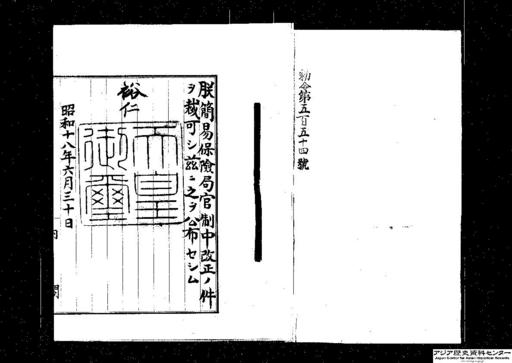 勅令第五百五十四號
朕簡易保險局官制中改正ノ件
ヲ裁可シ茲ニ之ヲ公布セシム
裕仁
天皇
御璽
昭和十八年六月三十日
内閣
アジア歴史資料センター
Japan Center for Asian Historical Records